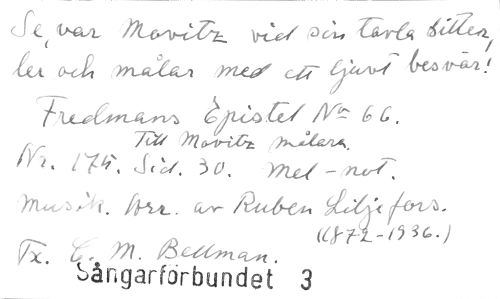 Se, var Movitz vid sin tavla sitter,
ler och målar med ett ljuvt besvär!
Fredmans Epistel No 66.
Till Movitz målare.
Nr. 174. Sid. 30. Mel-not.
Musik. Arr. av Ruben Liljefors.
(1872-1936.)
Tx. C. M. Bellman.
Sångarförbundet 3